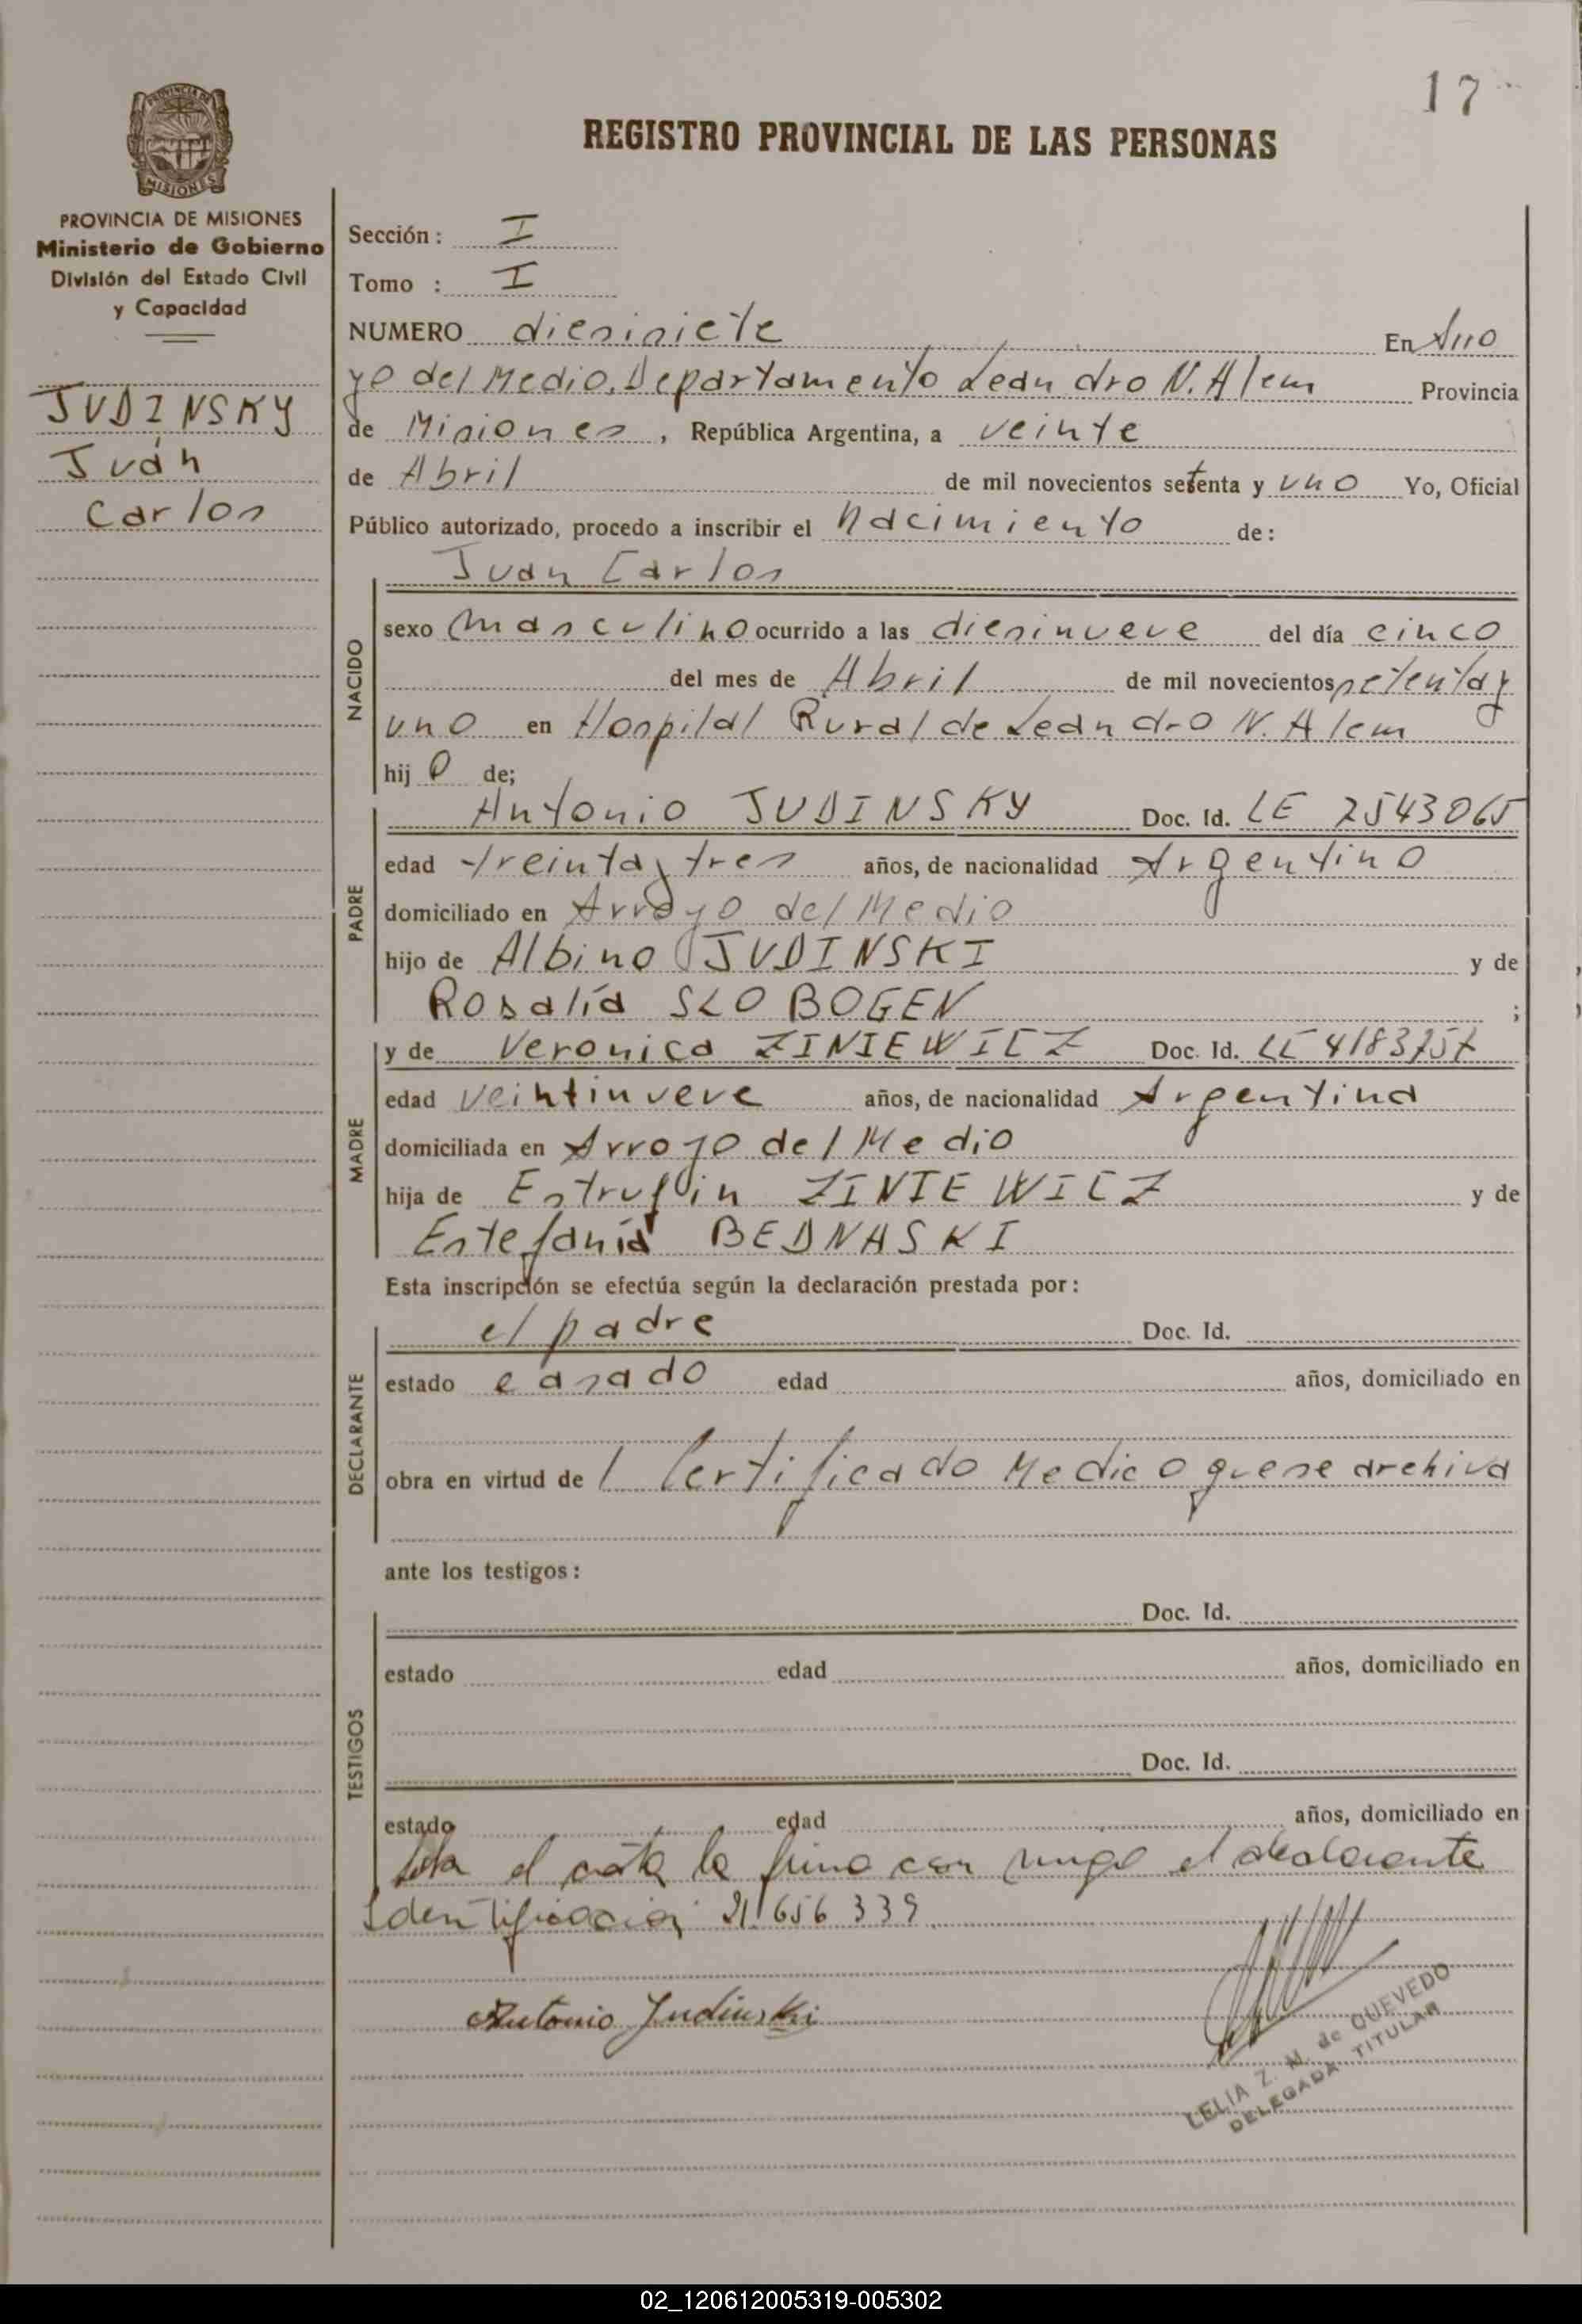 17
REGISTRO PROVINCIAL DE LAS PERSONAS
PROVINCIA DE MISIONES
PROVINCIA DE MISIONES
Ministerio de Gobierno
División del Estado Civil
y Capacidad
JUDINSKY
Juan
Carlos
Sección: I
Tomo : I
NUMERO diesisiete En Arro
yo del Medio, Departamento Leandro N. Alem Provincia
de Misiones, República Argentina, a veinte
de Abril de mil novecientos setenta y uno Yo, Oficial
Público autorizado, procedo a inscribir el nacimiento de:
Juan Carlos
NACIDO
sexo masculino ocurrido a las diesinueve del día cinco
del mes de Abril de mil novecientos setenta y
uno en Hospital Rural de Leandro N. Alem
hij o de;
PADRE
Antonio JUDINSKY Doc. Id. LE 7543065
edad treinta y tres años, de nacionalidad Argentino
domiciliado en Arroyo del Medio
hijo de Albino JUDINSKI y de
Rosalía SLOBOGEN ;
MADRE
y de Veronica ZINIEWICZ Doc. Id. LC
edad veintinueve años, de nacionalidad Argentina
domiciliada en Arroyo del Medio
hija de ZINIEWICZ y de
Estefanía BEDNASKI
Esta inscripción se efectúa según la declaración prestada por:
DECLARANTE
el padre Doc. Id.
estado casado edad años, domiciliado en
obra en virtud de 1 Certificado Medico que se archiva
ante los testigos:
TESTIGOS
Doc. Id.
estado edad años, domiciliado en
Doc. Id.
estado edad años, domiciliado en
el acta la firma con migo el declarante
Identificacion 21 656 339
Antonio Judinski
CELIA Z. M. de QUEVEDO
DELEGADA TITULAR
02_120612005319-005302